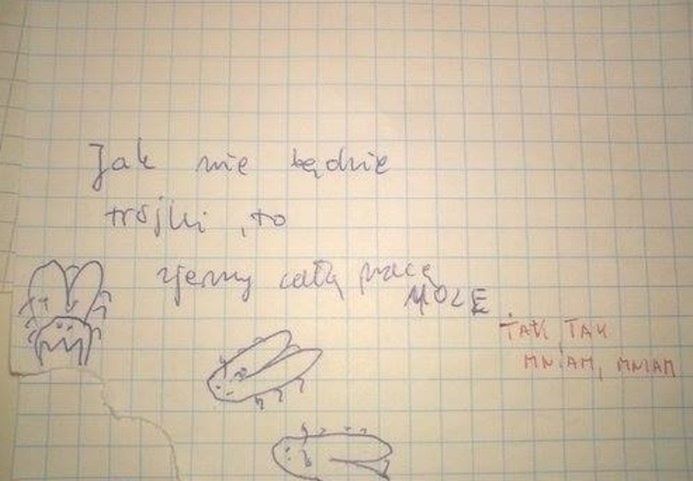 Jak nie będzie
trójki, to
zjemy całą pracę
MOLE
TAK, TAK
MNIAM, MNIAM